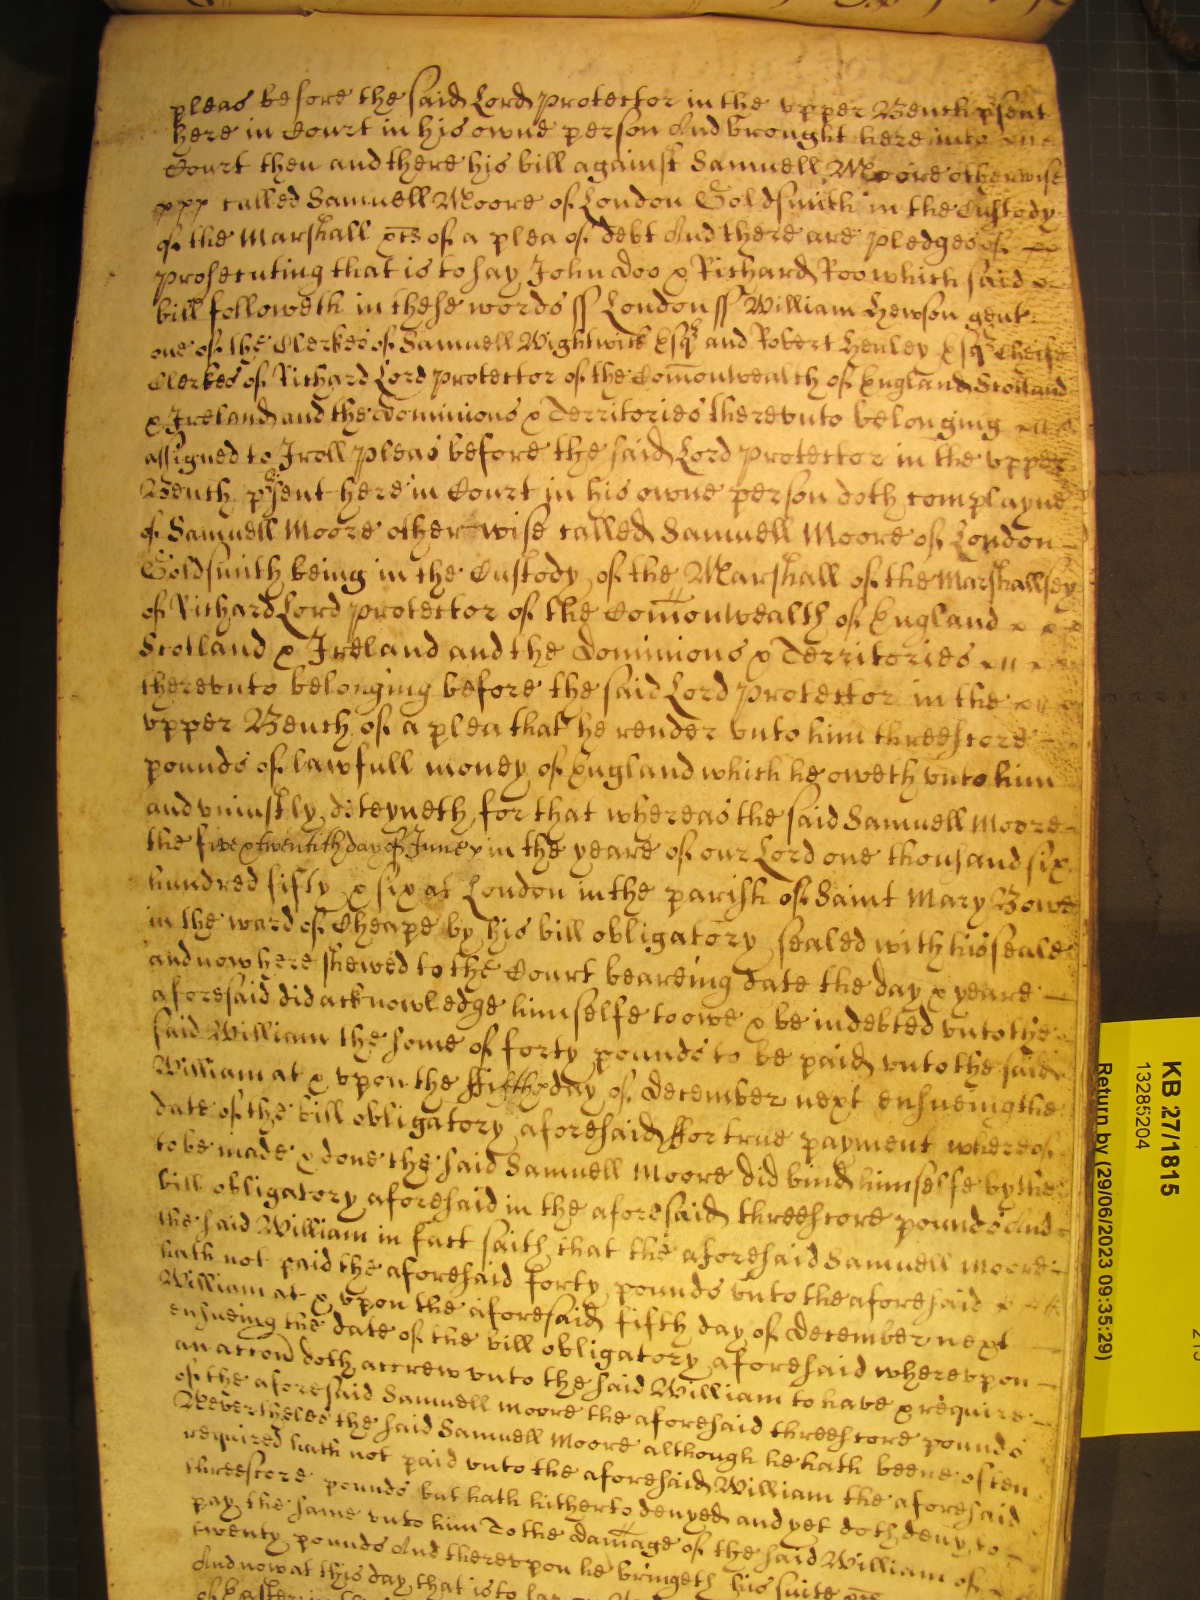 pleas before the said Lord Protector in the vpper Bench p̱sent
here in Court in his owne person And brought here into
Court then and there his bill against Samuell Moore otherwise
called Samuell Moore of London Goldsmith in the Custody
of the Marshall &c of a plea of debt And there are pledges of
prosecuting that is to say John Doo & Richard Roo which said
bill followeth in these words ss London ss William Hewson gent
one of the Clerkes of Samuell Wightwick Esqr and Robert Henley Esqr Cheife
Clerkes of Richard Lord Protector of the Com̄onwealth of England Scotland
& Ireland and the Dominions & Territories therevnto belonging
assigned to Inroll pleas before the said Lord Protector in the vpper
Bench p̱sent here in Court in his owne person doth complayne
of Samuell Moore other-wise called Samuell Moore of London
Goldsmith being in the Custody of the Marshall of the Marshallsey
of Richard Lord Protector of the Com̄onwealth of England
Scotland & Ireland and the Dominions & Territories
therevnto belonging before the said Lord Protector in the
vpper Bench of a plea that he render vnto him threescore
pounds of lawfull money of England which he oweth vnto him
and vniustly deteyneth for that whereas the said Samuell Moore
the five & twentith day of June in the yeare of our Lord one thousand six
hundred fifty & six at London in the parish of Saint Mary Bowe
in the ward of Cheape by his bill obligatory sealed with his seale
and now here shewed to the Court beareing date the day & yeare
aforesaid did acknowledge himselfe to owe & be indebted vnto the
said William the some of forty pounds to be paid vnto the said
William at & vpon the fifth day of December next ensueing the
date of the bill obligatory aforesaid ffor true payment whereof
to be made & done the said Samuell Moore did bind himselfe by the
bill obligatory aforesaid in the aforesaid threescore pounds And
the said William in fact saith that the aforesaid Samuell Moore
hath not paid the aforesaid forty pounds vnto the aforesaid
William at & vpon the aforesaid fifth day of December next
ensueing the date of the bill obligatory aforesaid wherevpon
an accon doth accrew vnto the said William to have & require
of the aforesaid Samuell Moore the aforesaid threescore pounds
Neverthelesse the said Samuell Moore although he hath beene often
required hath not paid vnto the aforesaid William the aforesaid
threescore pounds but hath hitherto denyed and yet doth deny to
pay the same vnto him To the dam̄age of the said William of
twenty pounds And therevpon he bringeth his suite &c
And now at this day that is to say
of Easter in
KB 27/1815
13285204
Return by (29/06/2023 09:35:29)